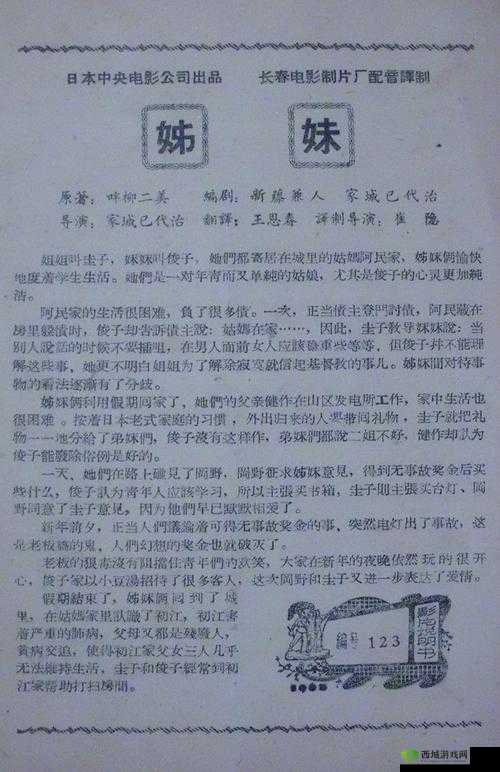 日本中央电影公司出品　　长春电影制片厂配音譯制
姊　妹
原著：畔柳二美　编剧：新藤兼人　家城巳代治
导演：家城巳代治　翻譯：王思春　譯制导演：崔　隐
姐姐叫圭子，妹妹叫俊子，她們都寄居在城里的姑媽阿民家，姊妹倆愉快
地度着学生生活。她們是一对年青而又单純的姑娘，尤其是俊子的心灵更加純
洁。
阿民家的生活很困难，負了很多債。一次，正当债主登門討債，阿民藏在
房里躱債时，俊子却告訴債主說：姑媽在家……，因此，圭子教导妹妹說：当
別人說話的时候不要插咀，在男人面前女人应該稳重些等等，但俊子幷不能理
解这些事，她更不明白姐姐为了解除寂寞就信起基督教的事儿。姊妹間对待事
物的看法逐漸有了分歧。
姊妹俩利用假期回家了，她們的父亲健作在山区发电所工作，家中生活也
很困难。按着日本老式家庭的习慣，外出归来的人要带回礼物，圭子就把礼
物一一地分給了弟妹們，俊子沒有这样作，弟妹們都說二姐不好，健作却認为
俊子能廢除俗例是好的。
一天，她們在路上碰見了岡野，岡野征求姊妹意見，得到无事故奖金后买
些什么，俊子認为青年人应該学习，所以主張买书箱，圭子則主張买台灯、岡
野同意了圭子意見，因为他們早已默默相爱了。
新年前夕，正当人們議論着可得无事故奖金的事，突然电灯出了事故，这
是老板搞的鬼，人們幻想的奖金也就破灭了。
老板的狠毒沒有阻擋住青年們的欢笑，大家在新年的夜晚依然玩的很开
心，俊子家以小豆湯招待了很多客人，这次岡野和圭子又进一步表达了爱情。
假期結束了，姊妹俩回到了城
里，在姑媽家里認識了初江，初江害
着严重的肺病，父母又都是残廢人，
貧病交迫，使得初江父女三人几乎
无法維持生活，圭子和俊子經常到初
江家帮助打扫房間。
影片說明书
编号 123
西域游戏网